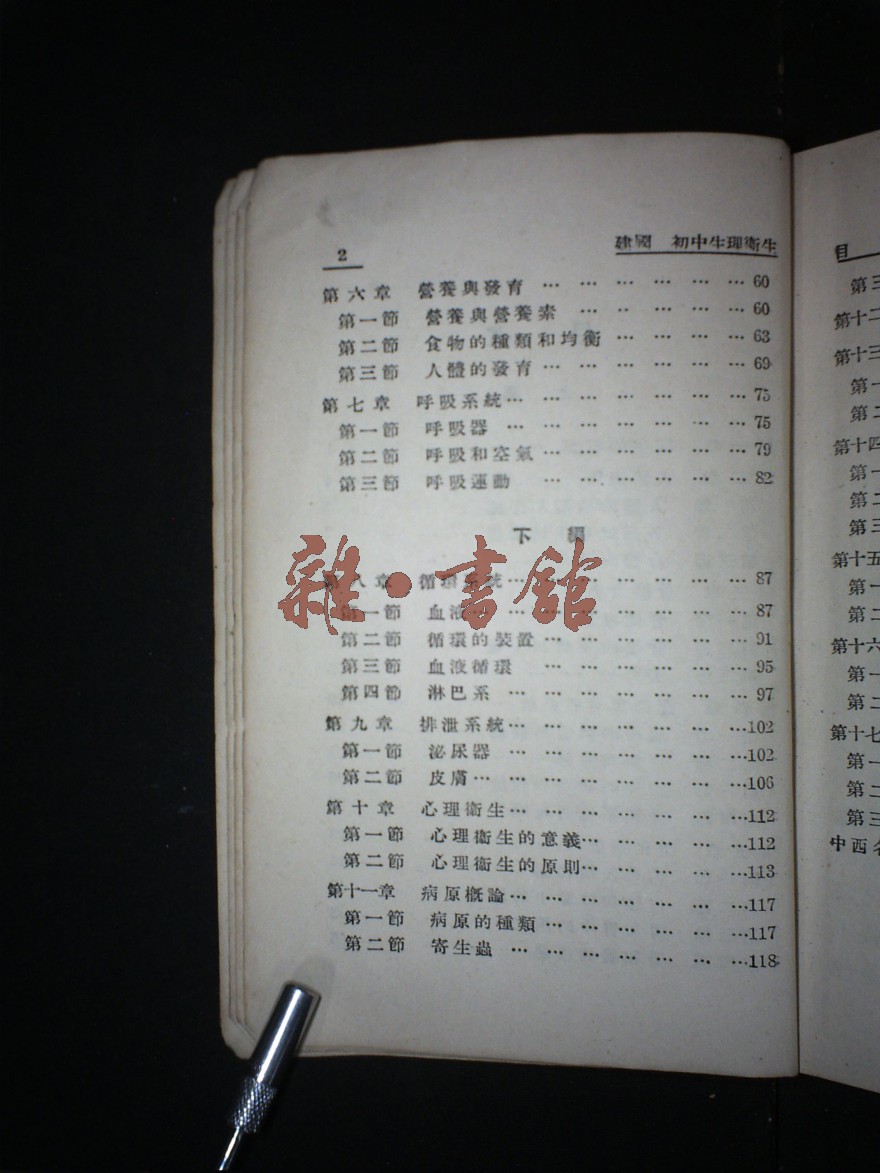 2 建國 初中生理衞生
第六章 營養與發育 … … … … … … 60
第一節 營養與營養素 … ‥ … … … … 60
第二節 食物的種類和均衡 … … … … … 63
第三節 人體的發育 … … … … … … 69
第七章 呼吸系統 … … … … … … … 75
第一節 呼吸器 … … … … … … … 75
第二節 呼吸和空氣 … … … … … … 79
第三節 呼吸運動 … … … … … … 82
下 編
第八章 循環系統 … … … … … … … 87
第一節 血液 … … … … … … … 87
第二節 循環的裝置 … … … … … … 91
第三節 血液循環 … … … … … … 95
第四節 淋巴系 … … … … … … … 97
第九章 排泄系統 … … … … … … … 102
第一節 泌尿器 … … … … … … … 102
第二節 皮膚 … … … … … … … 106
第十章 心理衞生 … … … … … … … 112
第一節 心理衞生的意義 … … … … … 112
第二節 心理衞生的原則 … … … … … 113
第十一章 病原槪論 … … … … … … … 117
第一節 病原的種類 … … … … … … 117
第二節 寄生蟲 … … … … … … … 118
雜·書館
目
第三
第十二
第十三
第一
第二
第十四
第一
第二
第三
第十五
第一
第二
第十六
第一
第二
第十七
第一
第二
第三
中西名